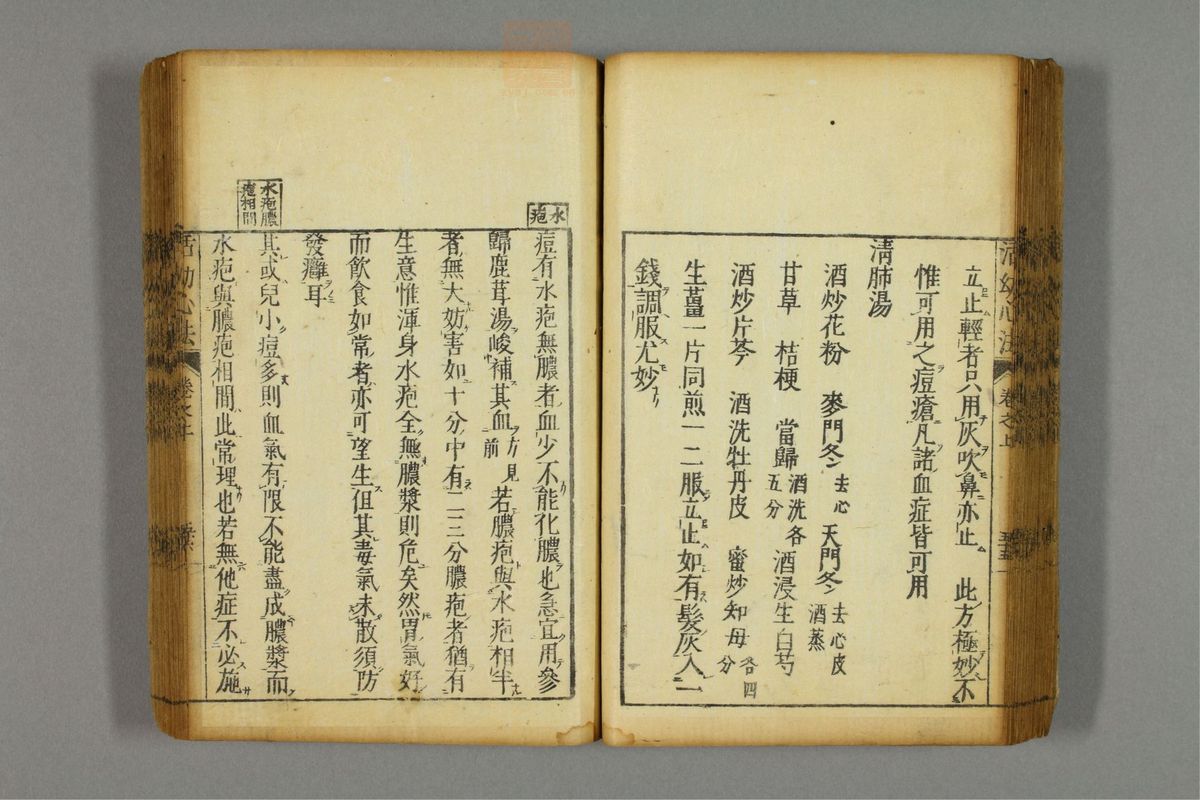 活幼心法
卷之上
立止輕者只用灰吹鼻亦止 此方極妙不
惟可用之痘瘡凡諸血症皆可用
清肺湯
酒炒花粉 麥門冬去心 天門冬去心皮酒蒸
甘草 桔梗 當歸酒洗各五分 酒浸生白芍
酒炒片芩 酒洗牡丹皮 蜜炒知母各四分
生薑一片同煎一二服立止如有髮灰入二
錢調服尤妙
水疱
痘有水疱無膿者血少不能化膿也急宜用參
歸鹿茸湯峻補其血方見前 若膿疱與水疱相半
者無大妨害如十分中有二三分膿疱者猶有
生意惟渾身水疱全無膿漿則危矣然胃氣好
而飲食如常者亦可望生但其毒氣未散須防
發癰耳
水疱膿疱相間
其或兒小痘多則血氣有限不能盡成膿漿而
水疱與膿疱相間此常理也若無他症不必施
活幼心法